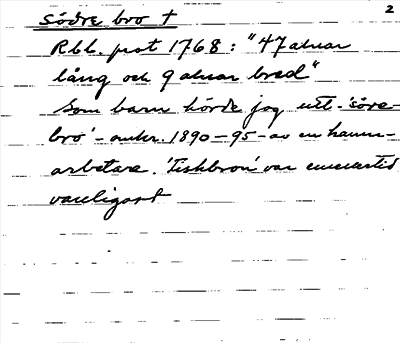 2
Södre bro †
Rbl. prot 1768: "47 alnar
lång och 9 alnar bred"
Som barn hörde jag utt. 'söre-
bro' - omkr. 1890-95 - av en hamn-
arbetare. 'Fiskbron' var emellertid
vanligast